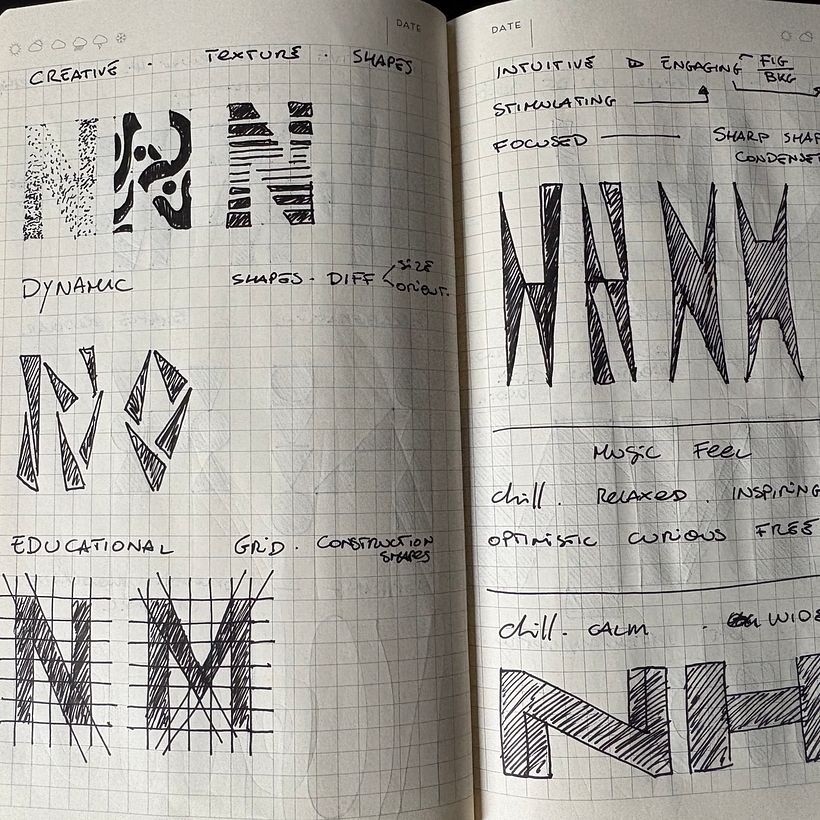 DATE
CREATIVE · TEXTURE · SHAPES
N N N
DYNAMIC SHAPES - DIFF < SIZE
ORIENT.
N O
EDUCATIONAL GRID · CONSTRUCTION
SHAPES
N M
DATE
INTUITIVE ▷ ENGAGING FIG
BKG
STIMULATING
FOCUSED SHARP SHAP
CONDENSE
N N N H
MUSIC FEEL
chill. RELAXED. INSPIRING
OPTIMISTIC CURIOUS FREE
chill. CALM - WIDE
N H